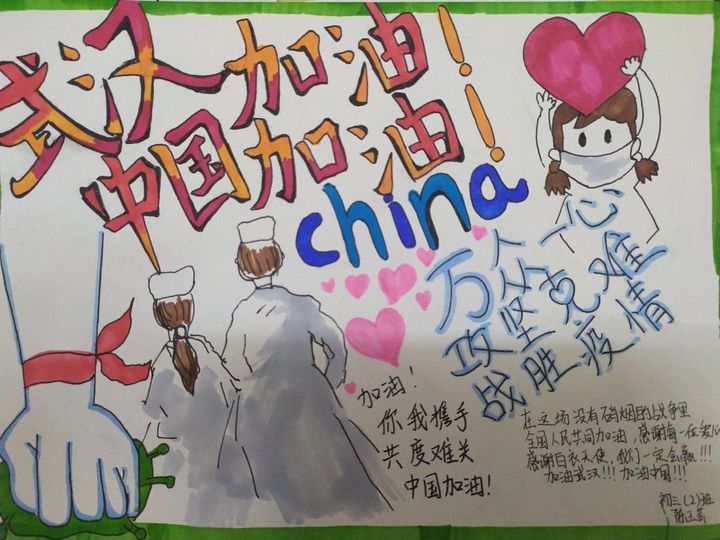 武汉加油！
中国加油！
china
万众一心
攻坚克难
战胜疫情
加油！
你我携手
共度难关
中国加油！
在这场没有硝烟的战争里
全国人民共同加油，感谢每一位爱心
感谢白衣天使，我们一定会赢!!!
加油武汉!!! 加油中国!!!
初三（2）班